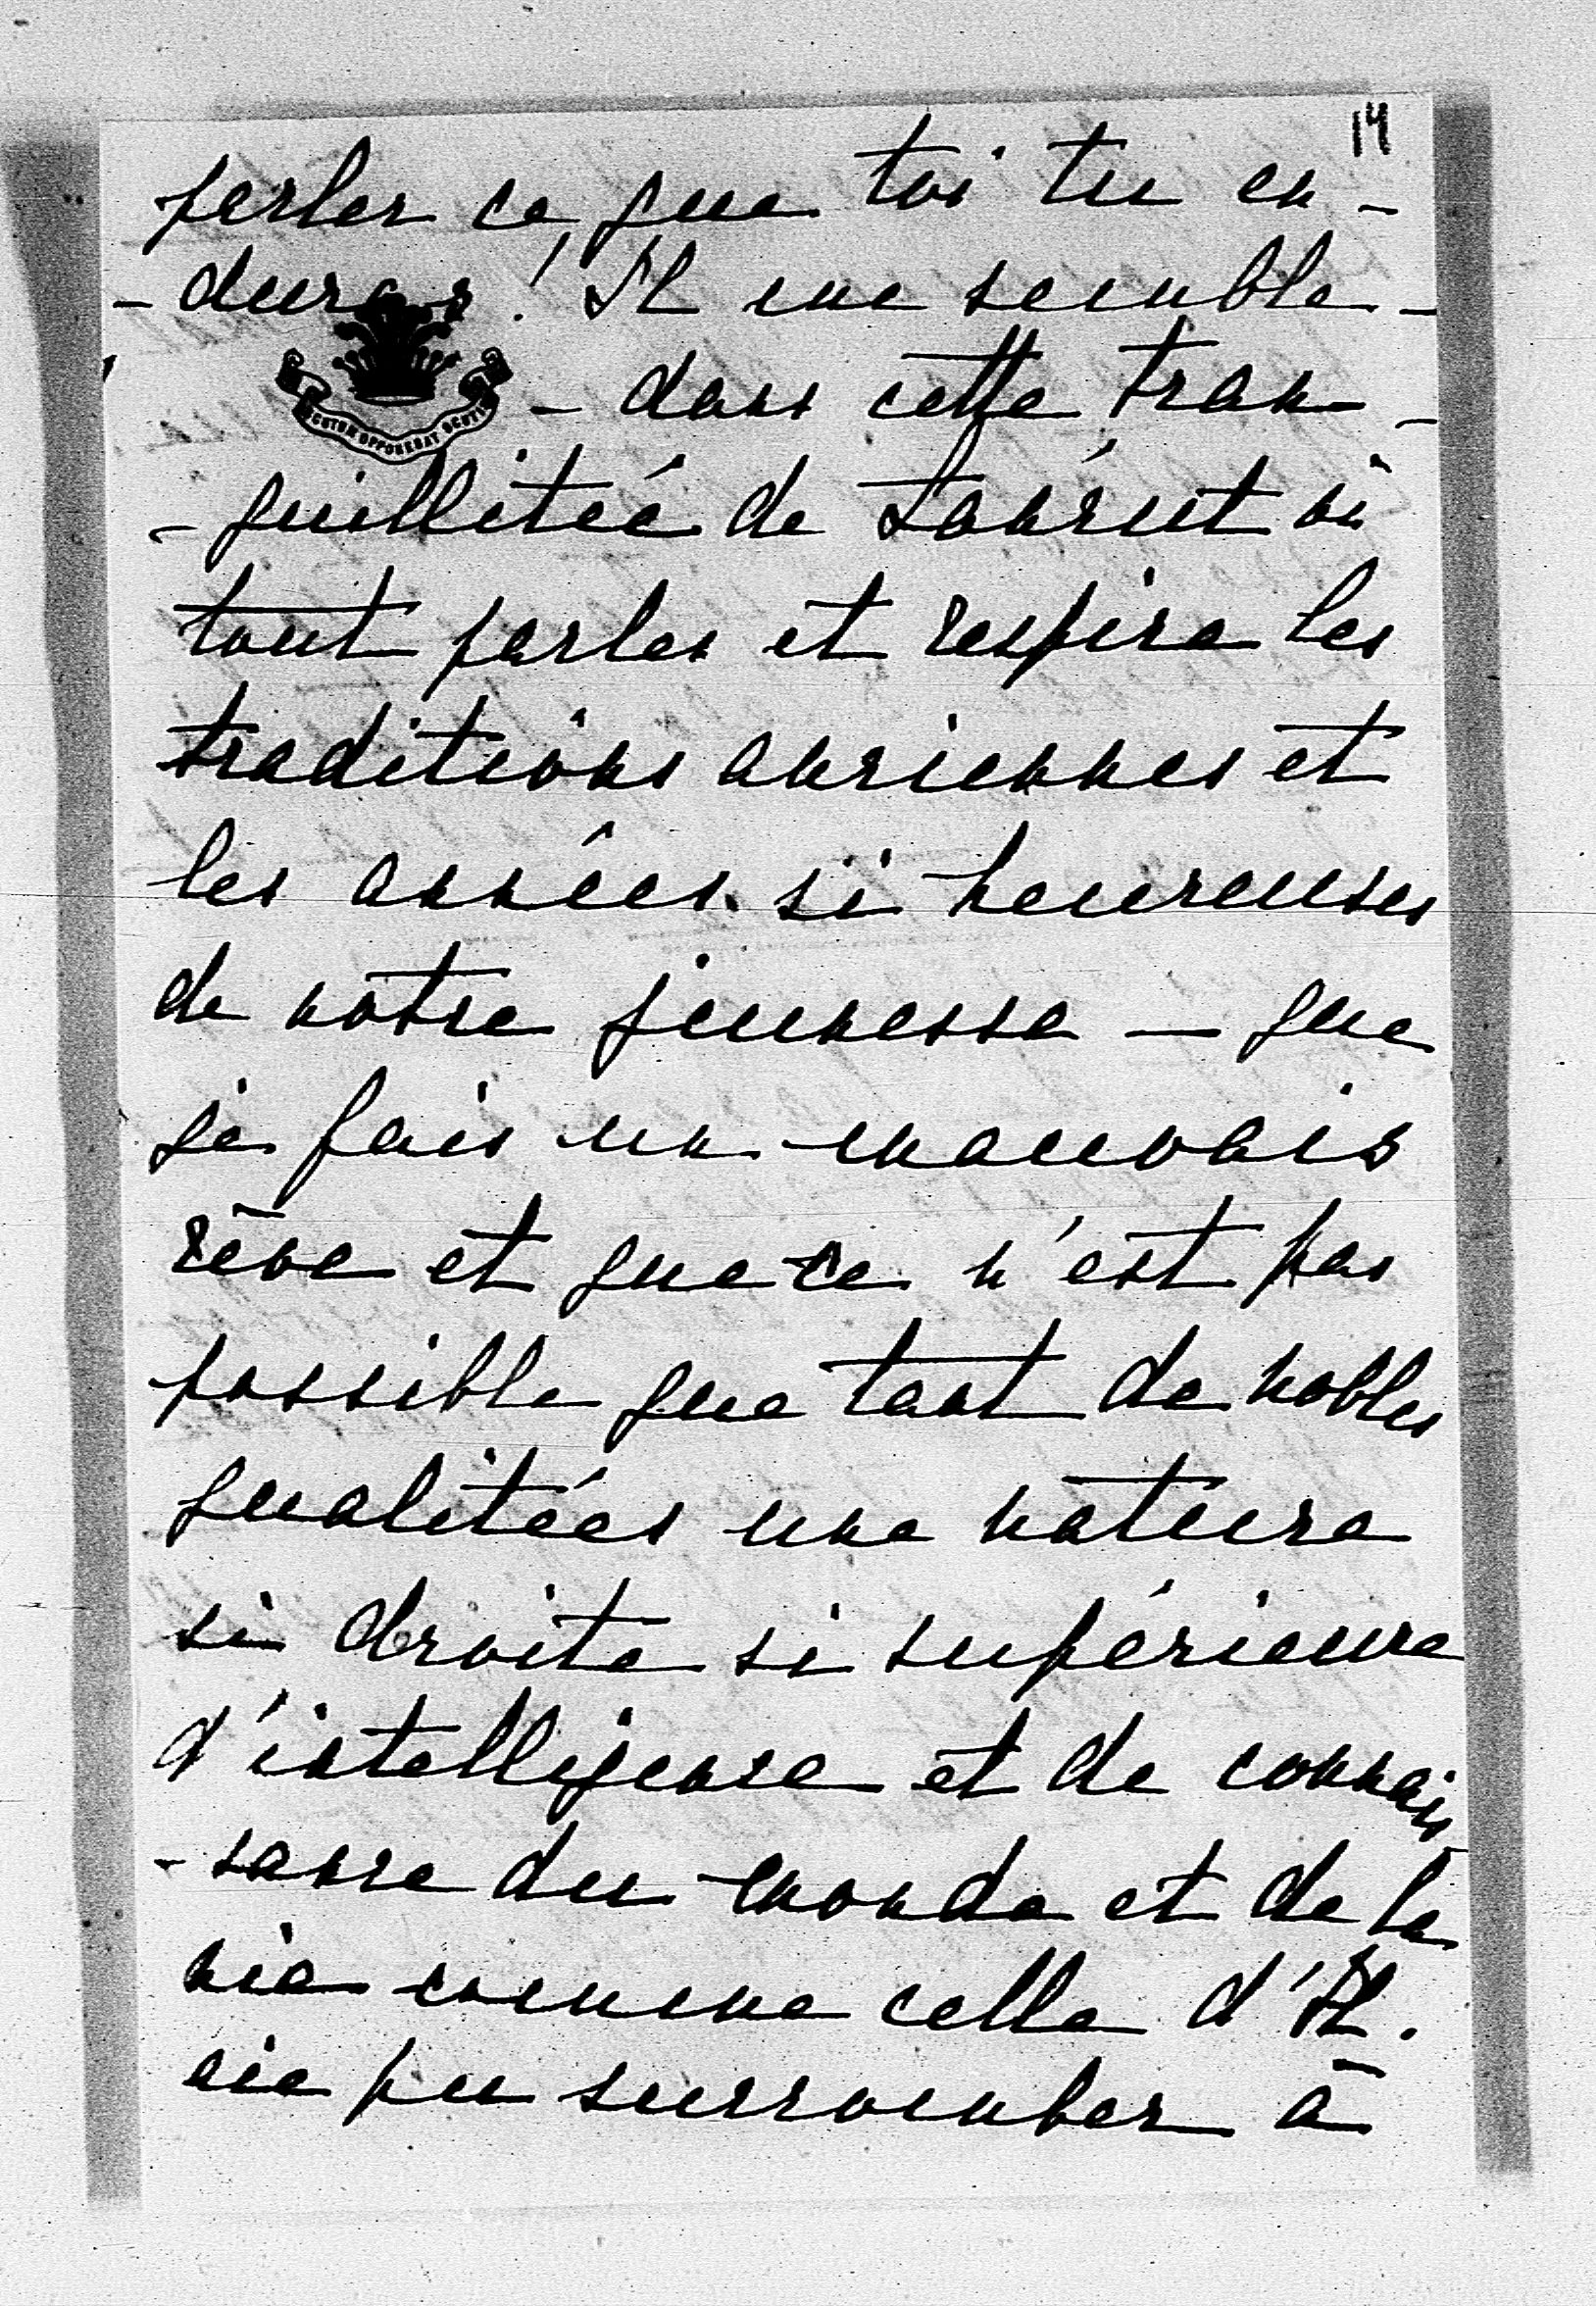 14
parler ce que toi tu en-
-dures! Il me semble-
SCUTUM OPPONEBAT SCUTIS
- dans cette tran-
-quillitée de Łańcut où
tout parles et respire les
traditions anciennes et
les années si heureuses
de notre jeunesse — que
je fais un mauvais
rêve et que ce n'est pas
possible que tant de nobles
qualitées une nature
si droite si supérieure
d'intelligence et de connais
-sance du monde et de la
vie comme celle d'Il.
aie pu succomber à